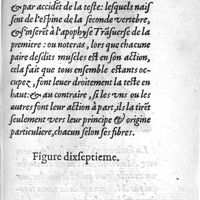 & par accidēt de la teste: lesquels naiſ
ſent de l'eſpine de la ſeconde vertebre,
& s'inſerēt à l'apophyſe Trāſuerſe de la
premiere: ou noteras, lors que chacune
paire deſdits muſcles eſt en ſon action,
cela fait que tous enſemble eſtants oc-
cupez, ſont leuer droitement la teste en
haut: & au contraire, ſi les vns ou les
autres ſont leur action à part, ils la tirēt
ſeulement vers leur principe & origine
particuliere, chacun ſelon ſes fibres.
Figure dixſeptieme.